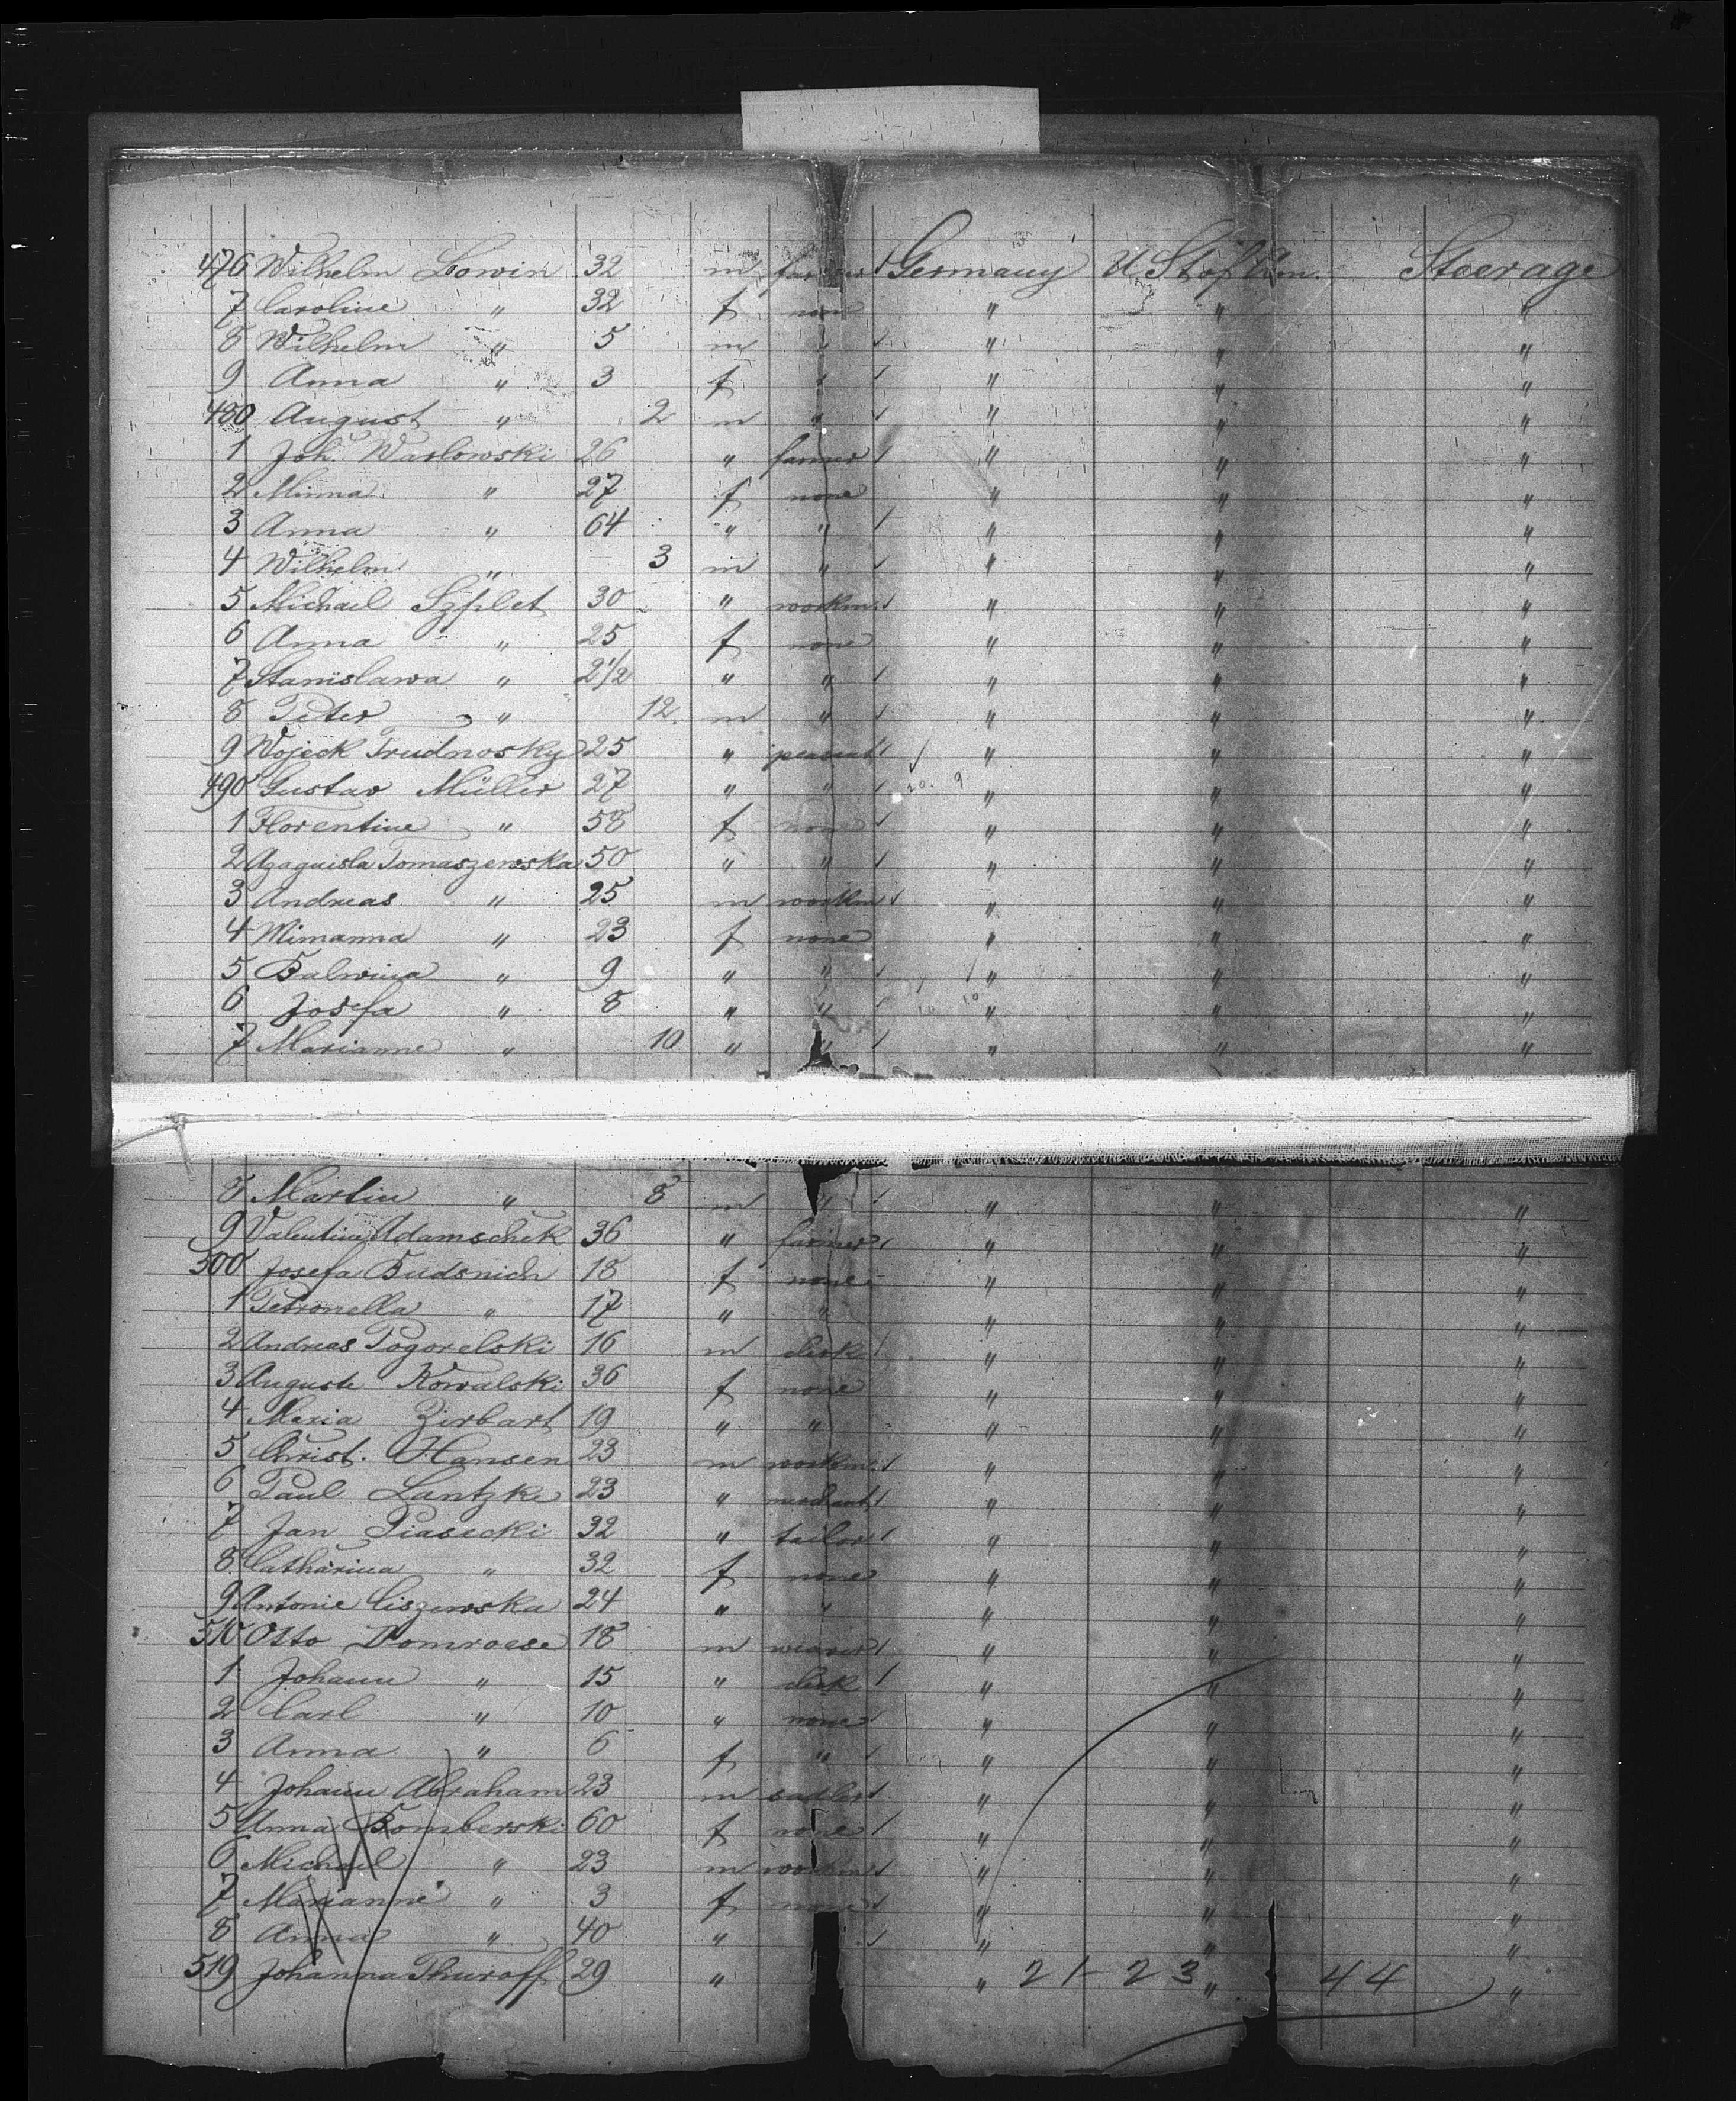 476 Wilhelm Lowin 32 m farmer Germany U. St of Am. Steerage
7 Caroline " 32 f none " " "
8 Wilhelm " 5 m " " " "
9 Anna " 3 f " " " "
480 August " 2 m " " " "
1 Joh. Warlowski 26 " farmer " " "
2 Minna " 27 f none " " "
3 Anna " 64 " " " " "
4 Wilhelm " 3 m " " " "
5 Michael Szflet 30 " workm. " " "
6 Anna " 25 f none " " "
7 Stanislawa " 2 1/2 " " " " "
8 Peter " 12 m " " " "
9 Wojeck Trudnosky 25 " peasant " " "
490 Gustav Müller 27 " " " " "
1 Florentine " 58 f none " " "
2 Azaguisla Tomaszewska 50 " " " " "
3 Andreas " 25 m workm " " "
4 Mimanna " 23 f none " " "
5 Balwina " 9 " " " " "
6 Josefa " 8 " " " " "
7 Marianne " 10 " " " " "
8 Martin " 8 m " " " "
9 Valentin Adamschek 36 " farmer " " "
500 Josefa Budsnich 18 f none " " "
1 Petronella " 17 " " " " "
2 Andreas Pogorelski 16 m clerk " " "
3 Auguste Kowalski 36 f none " " "
4 Maria Zirbart 19 " " " " "
5 Christ. Hansen 23 m workm. " " "
6 Paul Lantzke 23 " merchant " " "
7 Jan Piasecki 32 " tailor " " "
8 Catharina " 32 f none " " "
9 Antonie Ciszewska 24 " " " " "
510 Otto Domroese 18 m weaver " " "
1 Johann " 15 " clerk " " "
2 Carl " 10 " none " " "
3 Anna " 6 f " " " "
4 Johann Abraham 23 m sadler " " "
5 Anna Bomberski 60 f none " " "
6 Michael " 23 m workm " " "
7 Marianne " 3 f none " " "
8 Anna " 40 " " " "
519 Johanna Thuroff 29 " " 21 - 23 " 44 "